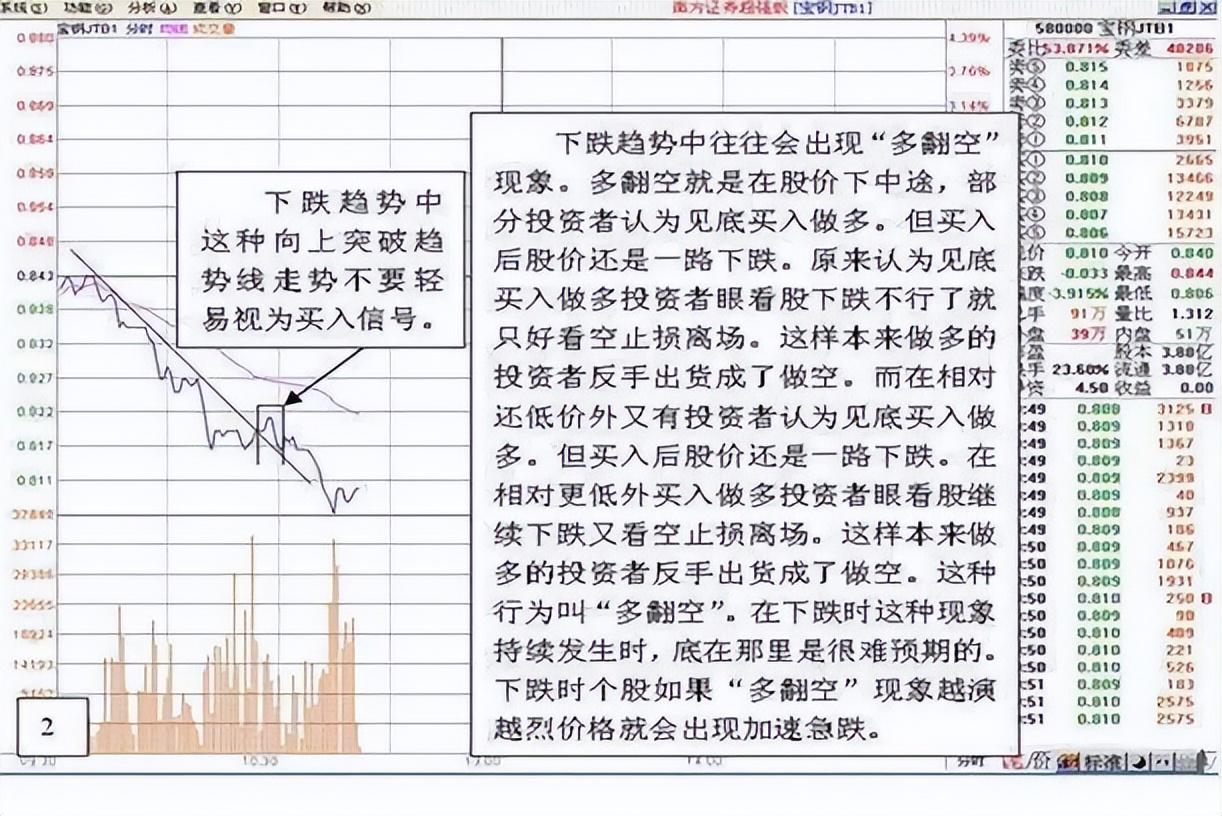 功能 分析 查看 窗口 帮助
[宝钢JTB1]
宝钢JTB1 分时 均线 成交量
580000 宝钢JTB1
委比 53.871% 委差 40206
0.815 1075
0.814 1256
0.813 3379
0.812 6787
0.811 3951
0.810 2665
0.809 13466
0.808 12249
0.807 13431
0.806 15723
0.810 今开 0.840
-0.033 最高 0.844
-3.915% 最低 0.806
91万 量比 1.312
39万 内盘 51万
股本 3.88亿
23.60% 流通 3.88亿
4.50 收益 0.00
:49 0.808 3125
:49 0.809 1310
:49 0.809 1367
:49 0.809 23
:49 0.809 2399
:49 0.809 40
:49 0.808 937
:49 0.809 186
:50 0.809 467
:50 0.809 1076
:50 0.809 1931
:50 0.810 250
:50 0.809 90
:50 0.810 409
:50 0.810 221
:50 0.810 526
:51 0.809 183
:51 0.810 2575
:51 0.810 2575
0.875
0.864
0.843
0.838
0.832
0.827
0.822
0.817
0.811
33117
下跌趋势中
这种向上突破趋
势线走势不要轻
易视为买入信号。
下跌趋势中往往会出现“多翻空”
现象。多翻空就是在股价下中途，部
分投资者认为见底买入做多。但买入
后股价还是一路下跌。原来认为见底
买入做多投资者眼看股下跌不行了就
只好看空止损离场。这样本来做多的
投资者反手出货成了做空。而在相对
还低价外又有投资者认为见底买入做
多。但买入后股价还是一路下跌。在
相对更低外买入做多投资者眼看股继
续下跌又看空止损离场。这样本来做
多的投资者反手出货成了做空。这种
行为叫“多翻空”。在下跌时这种现象
持续发生时，底在那里是很难预期的。
下跌时个股如果“多翻空”现象越演
越烈价格就会出现加速急跌。
2
10:30
分时
标准